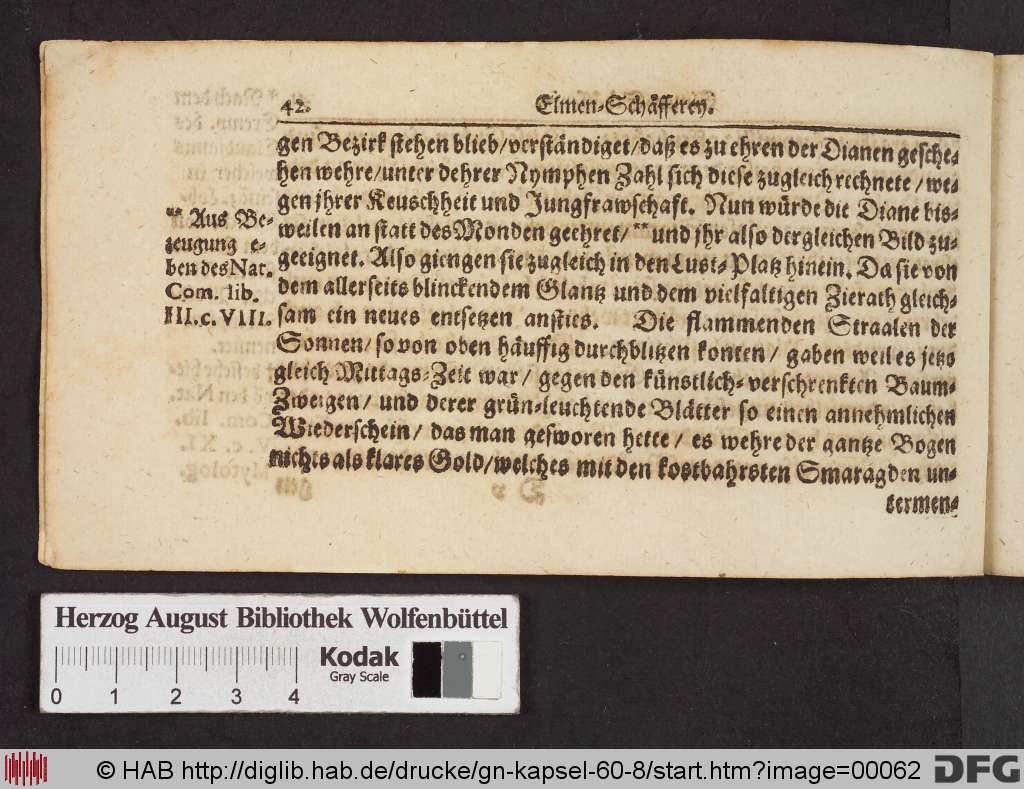 42. Elmen-Schäfferey.
gen Bezirk stehen blieb/verständiget/daß es zu ehren der Dianen gesche-
hen wehre/unter dehrer Nymphen Zahl sich diese zugleich rechnete/we-
gen jhrer Keuschheit und Jungfrawschaft. Nun würde die Diane bis-
weilen an statt des Monden geehret/** und jhr also dergleichen Bild zu-
geeignet. Also giengen sie zugleich in den Lust-Platz hinein. Da sie von
dem allerseits blinckendem Glantz und dem vielfaltigen Zierath gleich-
sam ein neues entsetzen ansties. Die flammenden Straalen der
Sonnen/ so von oben häuffig durchblitzen konten/ gaben weil es jetzo
gleich Mittags-Zeit war/ gegen den künstlich-verschrenkten Baum-
Zweigen/ und derer grün-leuchtende Blätter so einen annehmlichen
Wiederschein/ das man gesworen hette/ es wehre der gantze Bogen
nichts als klares Gold/welches mit den kostbahrsten Smaragden un-
termen-
** Aus Be-
zeugung e-
ben des Nat.
Com. lib.
III. c. VIII.
Herzog August Bibliothek Wolfenbüttel
Kodak
Gray Scale
0 1 2 3 4
© HAB http://diglib.hab.de/drucke/gn-kapsel-60-8/start.htm?image=00062
DFG